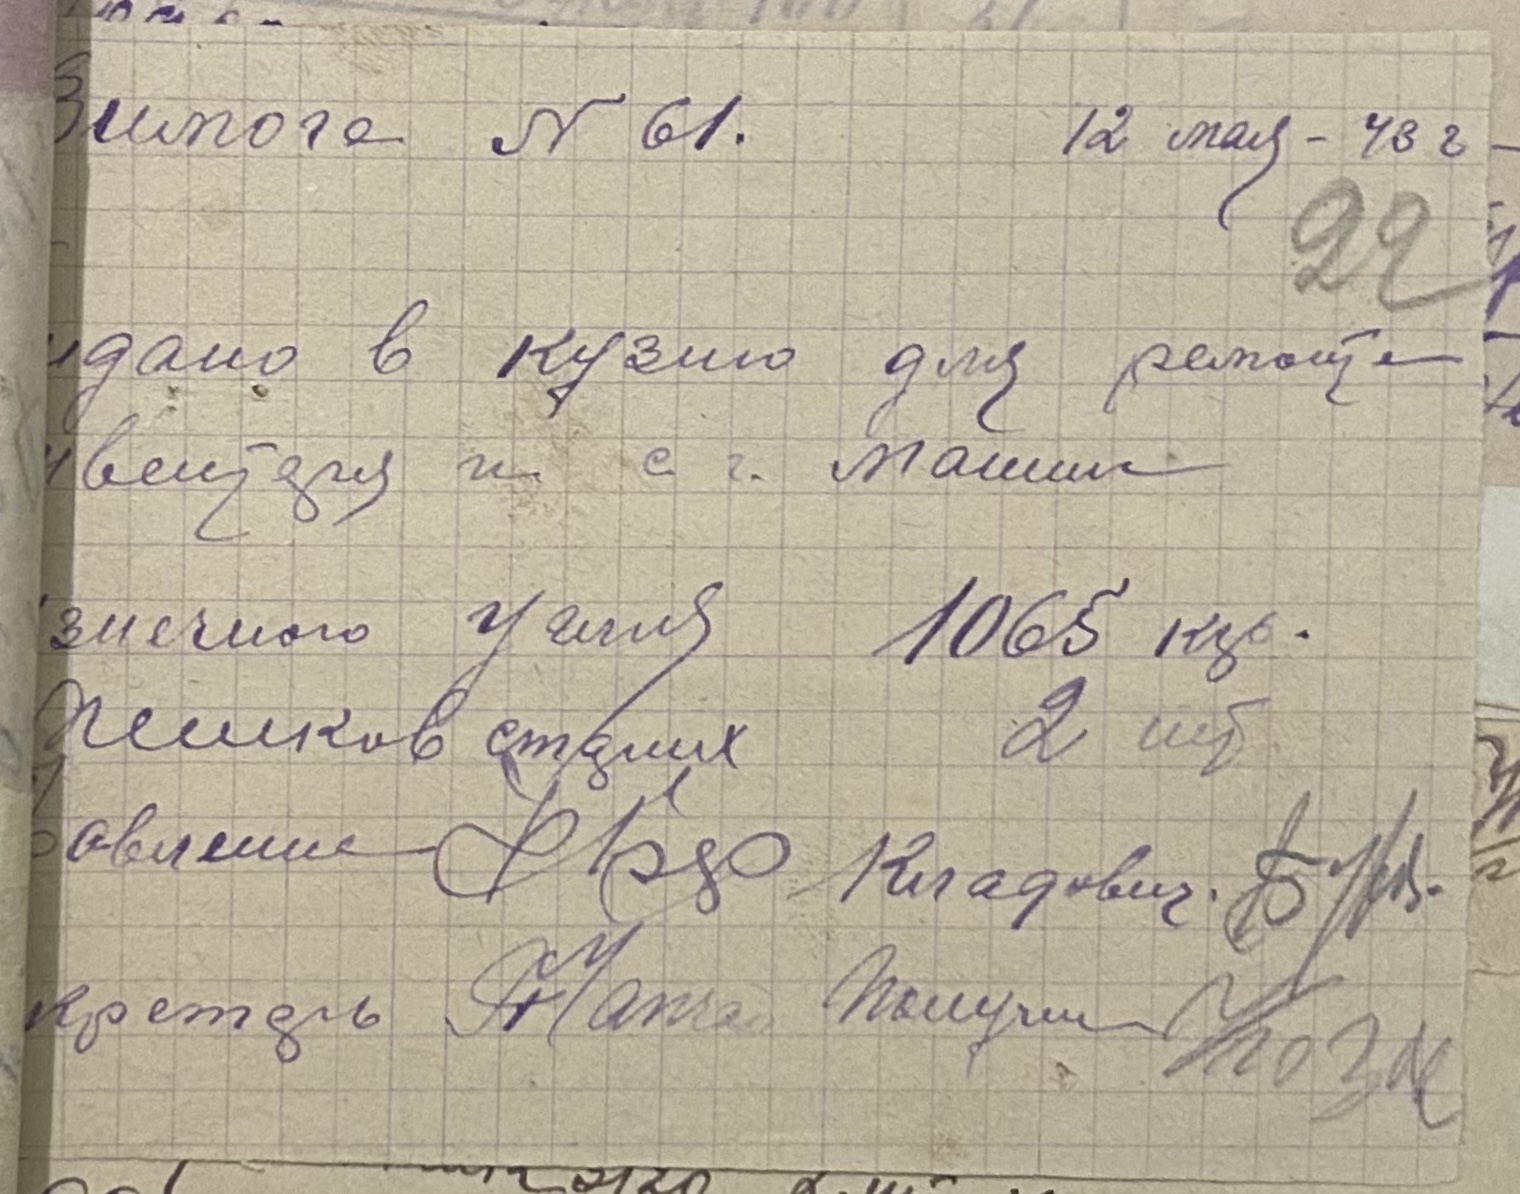 Вимога № 61. 12 мая - 43 г
22
идано в кузню для ремонта
нвентаря и с. г. машин
знечного угля 1065 клг.
Мешков старих 2 шт
равление Кладович.
кретарь Получил